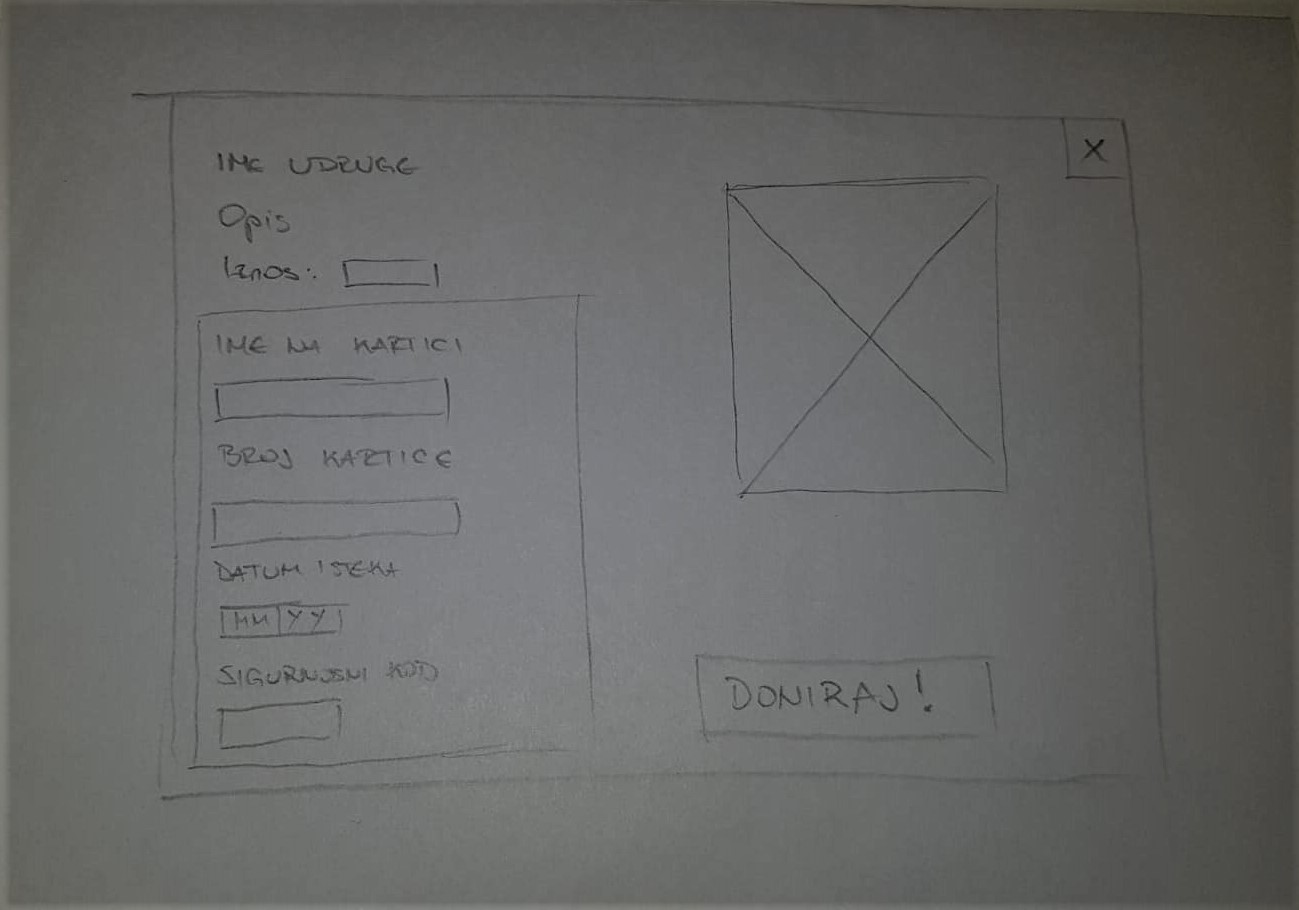 X
IME UDRUGE
Opis
Iznos:
IME NA KARTICI
BROJ KARTICE
DATUM ISTEKA
MM YY
SIGURNOSNI KOD
DONIRAJ!